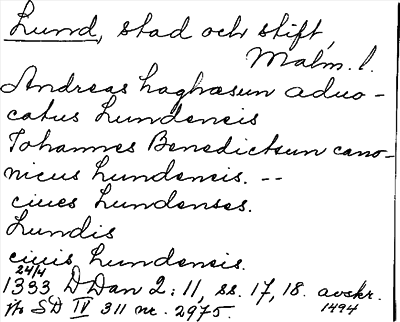 Lund, stad och stift,
Malm. l.
Andreas haghæsun aduo-
catus Lundensis
Johannes Benedictsun cano-
nicus Lundensis. --
ciues Lundenses.
Lundis
ciuis Lundensis.
24/4
1333 D Dan 2:11, ss. 17, 18. avskr.
1494
jfr SD IV 311 nr. 2975.